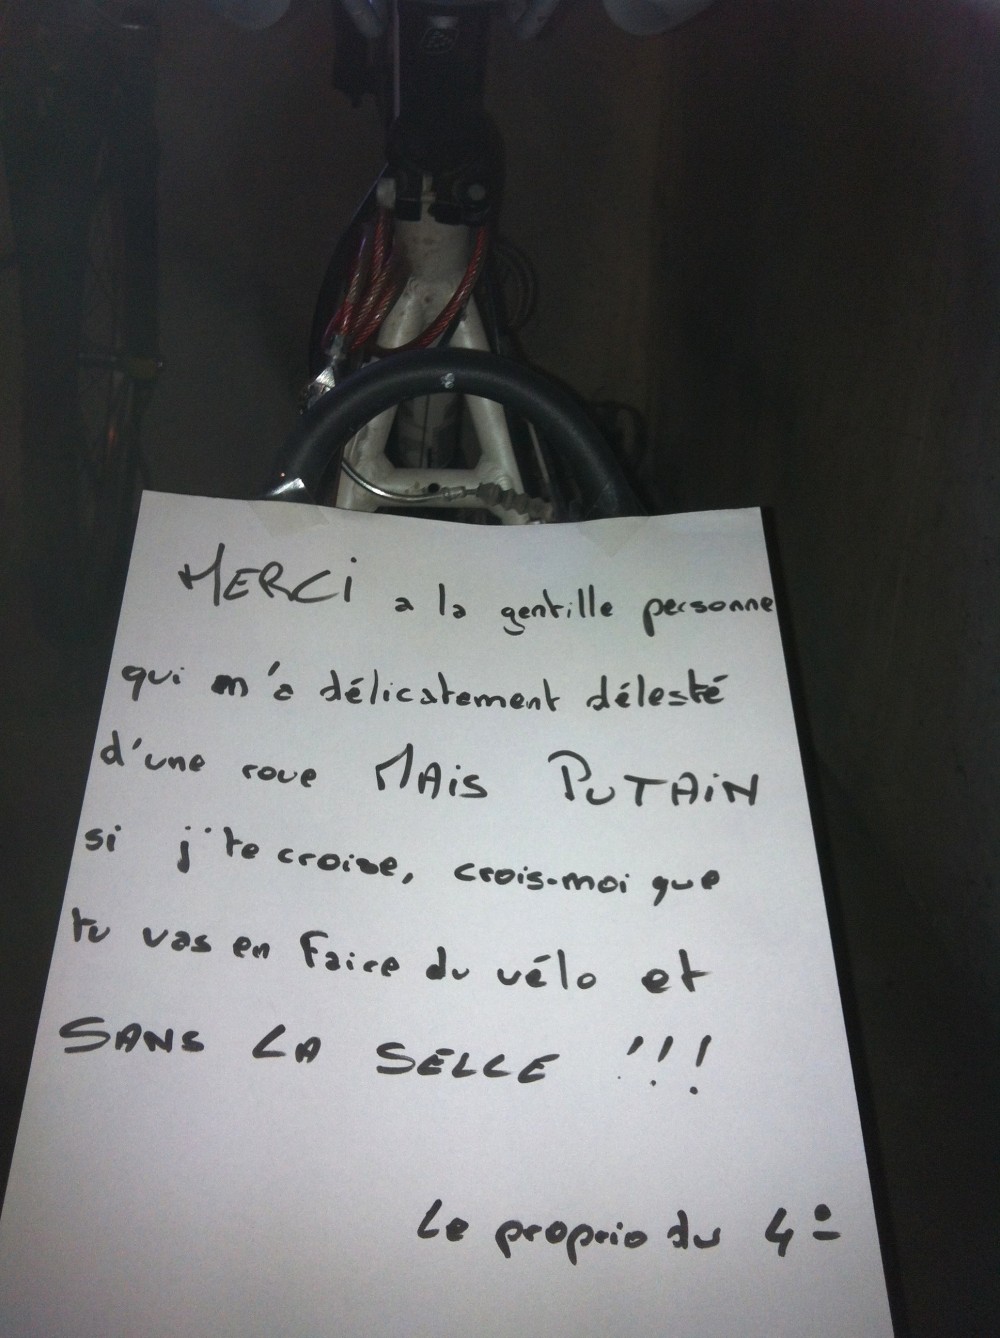 MERCi a la gentille personne
qui m'a délicatement délesté
d'une roue MAiS PUTAiN
si j'te croise, crois-moi que
tu vas en faire du vélo et
SANS LA SELLE !!!
Le proprio du 4º